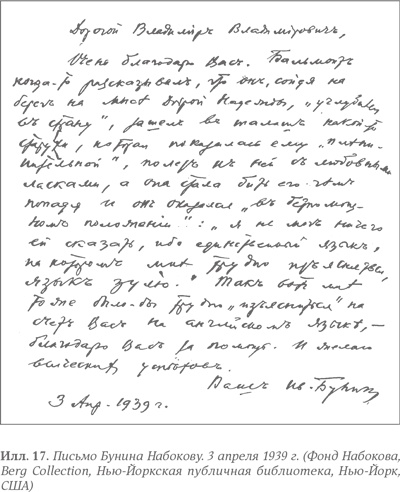 Дорогой Владиміръ Владиміровичъ,
Очень благодарю Васъ. Бальмонтъ
когда-то разсказывалъ, что онъ, сойдя на
берегъ на мысѣ Доброй Надежды, „углубился
въ страну“, зашелъ въ шалашъ какой-то
старухи, которая показалась ему „плѣни-
тельной“, полезъ къ ней съ любовными
ласками, а она стала бить его чѣмъ
попадя и онъ оказался „въ безпомощ-
номъ положеніи“: „я не могъ ничего
ей сказать, ибо единственный языкъ,
на которомъ мнѣ трудно изъясняться,
языкъ зулю.“ Такъ вотъ мнѣ
тоже было-бы трудно „изъясняться“ на
счетъ Васъ на англійскомъ языкѣ, —
благодарю Васъ за помощь. И желаю
всяческихъ успѣховъ.
Вашъ Ив. Бунинъ
3 Апр. 1939 г.
Илл. 17. Письмо Бунина Набокову. 3 апреля 1939 г. (Фонд Набокова,
Berg Collection, Нью-Йоркская публичная библиотека, Нью-Йорк,
США)